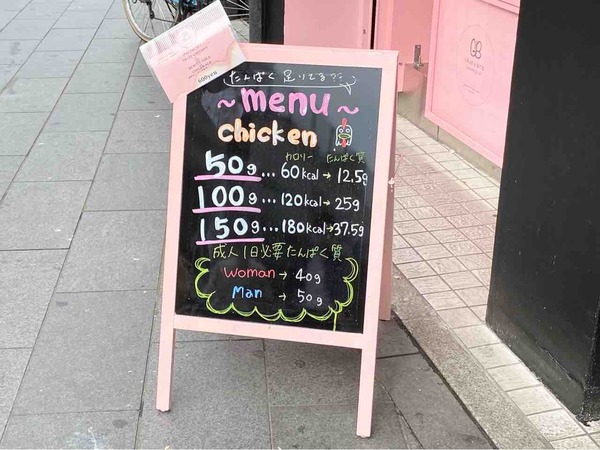 500yen
たんぱく足りてる??
~menu~
chicken
カロリー たんぱく質
50g...60kcal→12.5g
100g...120kcal→25g
150g...180kcal→37.5g
成人1日必要たんぱく質
Woman→40g
Man→50g
GB